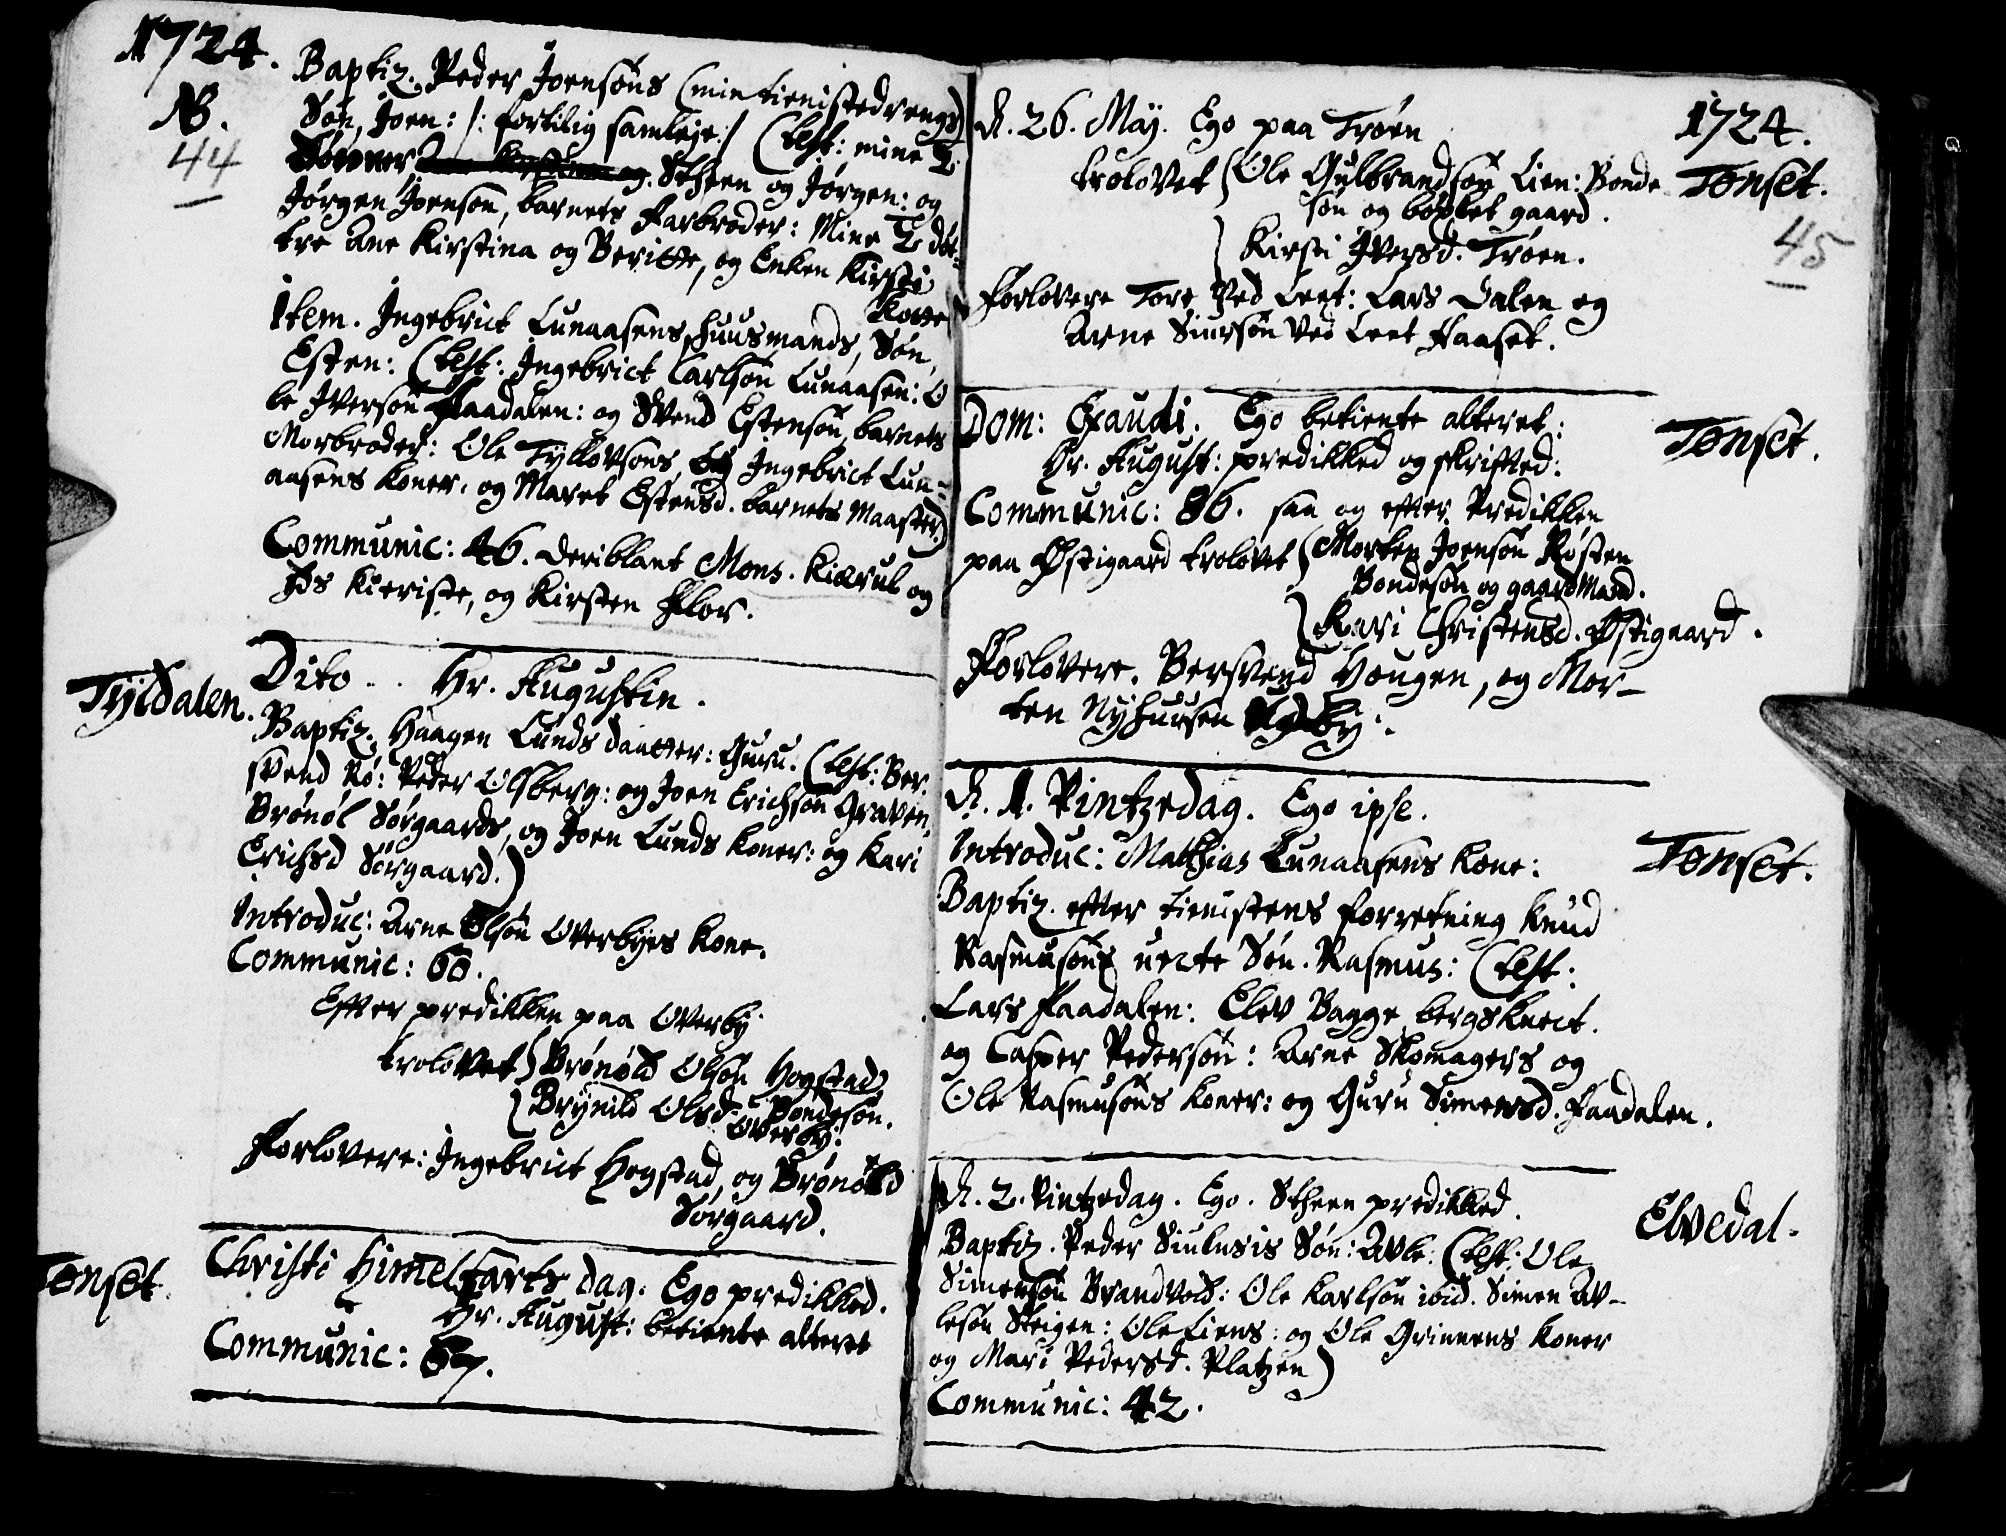 1724.
NB.
44
Baptiz. Peder Joensøns (min tienistedrengs)
Søn, Joen: /: fortilig samleje :/ (test: mine 2
Sønner og Stheen og Jørgen: og
Jørgen Joensøn, barnets Farbroder: Mine 2 døt-
tre Ane Kirstina og Beritte, og Enken Kirsti
Kove
Item. Ingebrict Lunaasens huusmands, Søn,
Esten: (test: Ingebrict Carlsøn Lunaasen: O
le Iversøn Faadalen: og Svend Estensøn, barnets
Morbroder: Ole Tyllovsøns, Ingebrict Lun-
aasens koner, og Maret Estensd. barnets Maaster)
Communic: 46. deriblant Mons. Kiærul og
Hs Kieriste, og Kirsten Flor.
Tyldalen.
Dito . . Hr. Augustin.
Baptiz. Haagen Lunds daatter: Guru. (test: Ber.
svend Rø: Peder Olsberg: og Joen Erichsøn Graven,
Brønøl Sørgaards, og Joen Lunds koner: og Kari
Erichsd Sørgaard.)
Introduc: Arne Olsøn Overbyes kone.
Communic: 60.
Efter predikken paa Overby
trolovet { Brønøld Olsøn Hogstad
Bondesøn.
{ Brynild Olsd. Overby:
Forlovere: Ingebrict Hogstad, og Brønøld
Sørgaard.
Tønset
Christi Himelfarts dag. Ego predikked.
Hr. August: betiente alteret
Communic: 67.
1724.
Tønset.
45
d. 26. May. Ego paa Trøen
trolovet { Ole Gulbrandsøn Lien: Bonde
søn og bøxlet gaard.
{ Kirsti Iversd. Trøen.
Forlovere Tore Ved Leet: Lars Dalen og
Arne Siursøn Ved Leet Faaset.
Tønset.
Dom: Exaudi. Ego betiente alteret:
Hr. August: predikked og skrifted:
Communic: 86. saa og efter Predikken
paa Østigaard trolovet { Morten Joensøn Røsten
Bondesøn og gaardMand.
{ Kari Christensd. Østigaard.
Forlovere. Bersvend Hougen, og Mor-
ten Nyhuusen
Tønset.
d. 1. Pintzedag. Ego ipse.
Introduc: Mathias Lunaasens kone:
Baptiz. efter tienistens forretning Knud
Rasmusøns uecte Søn. Rasmus: (test:
Lars Faadalen: Elev Bagge bergsknect.
og Casper Pedersøn: Arne Skomagers og
Ole Rasmusøns koner: og Guru Simensd. Faadalen.
Elvedal.
d. 2. Pintzedag. Ego. Stheen predikked.
Baptiz. Peder Siulusis Søn: Avle: (test: Ole
Simensøn Brandvold: Ole Karlsøn ibid. Simen Av-
lesøn Steigen: Ole Liens: og Ole Grinnens koner
og Mari Pedersd. Platzen)
Communic: 42.